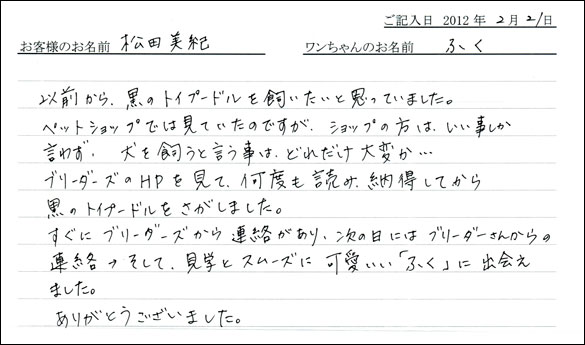 ご記入日 2012年2月21日
お客様のお名前 松田美紀 ワンちゃんのお名前 ふく
以前から、黒のトイプードルを飼いたいと思っていました。
ペットショップでは見ていたのですが、ショップの方は、いい事しか
言わず、犬を飼うと言う事は、どれだけ大変か…
ブリーダーズのHPを見て、何度も読み、納得してから
黒のトイプードルをさがしました。
すぐにブリーダーズから連絡があり、次の日にはブリーダーさんからの
連絡→そして、見学とスムーズに可愛いい「ふく」に出会え
ました。
ありがとうございました。